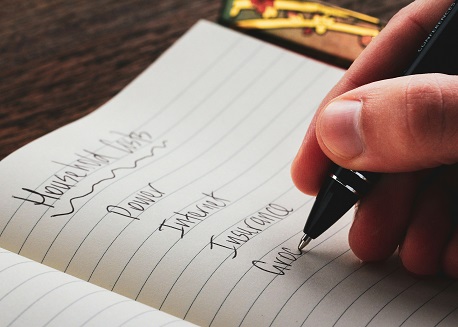 Household Costs
Power
Internet
Insurance
Groc